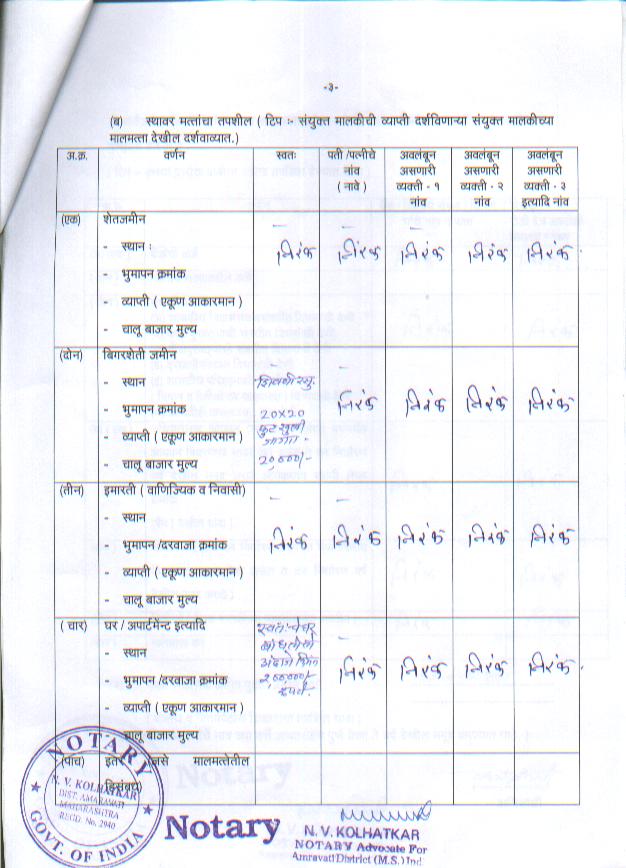 -३-
(ब) स्थावर मत्तांचा तपशील ( टिप :- संयुक्त मालकीची व्याप्ती दर्शविणाऱ्या संयुक्त मालकीच्या
मालमत्ता देखील दर्शवाव्यात.)
अ.क्र. वर्णन स्वतः पती /पत्नीचे नांव ( नावे ) अवलंबून असणारी व्यक्ती - १ नांव अवलंबून असणारी व्यक्ती - २ नांव अवलंबून असणारी व्यक्ती - ३ इत्यादि नांव
(एक) शेतजमीन
- स्थान : निरंक निरंक निरंक निरंक निरंक
- भुमापन क्रमांक
- व्याप्ती ( एकूण आकारमान )
- चालू बाजार मुल्य
(दोन) बिगरशेती जमीन
- स्थान
- भुमापन क्रमांक 20X20 निरंक निरंक निरंक निरंक
- व्याप्ती ( एकूण आकारमान ) फुट खुली जागा -
- चालू बाजार मुल्य 20,000/-
(तीन) इमारती ( वाणिज्यिक व निवासी)
- स्थान
- भुमापन /दरवाजा क्रमांक निरंक निरंक निरंक निरंक निरंक
- व्याप्ती ( एकूण आकारमान )
- चालू बाजार मुल्य
( चार) घर / अपार्टमेन्ट इत्यादि स्वतःचे घर
- स्थान
- भुमापन /दरवाजा क्रमांक 2,00,000/- रुपये. निरंक निरंक निरंक निरंक
- व्याप्ती ( एकूण आकारमान )
चालू बाजार मुल्य
(पाच) इतर जसे मालमत्तेतील
हितसंबंध
NOTARY
N. V. KOLHATKAR
DIST. AMARAVATI
MAHARASHTRA
REGD. No. 2940
GOVT. OF INDIA
Notary
N. V. KOLHATKAR
NOTARY Advocate For
Amravati District (M.S.) Ind